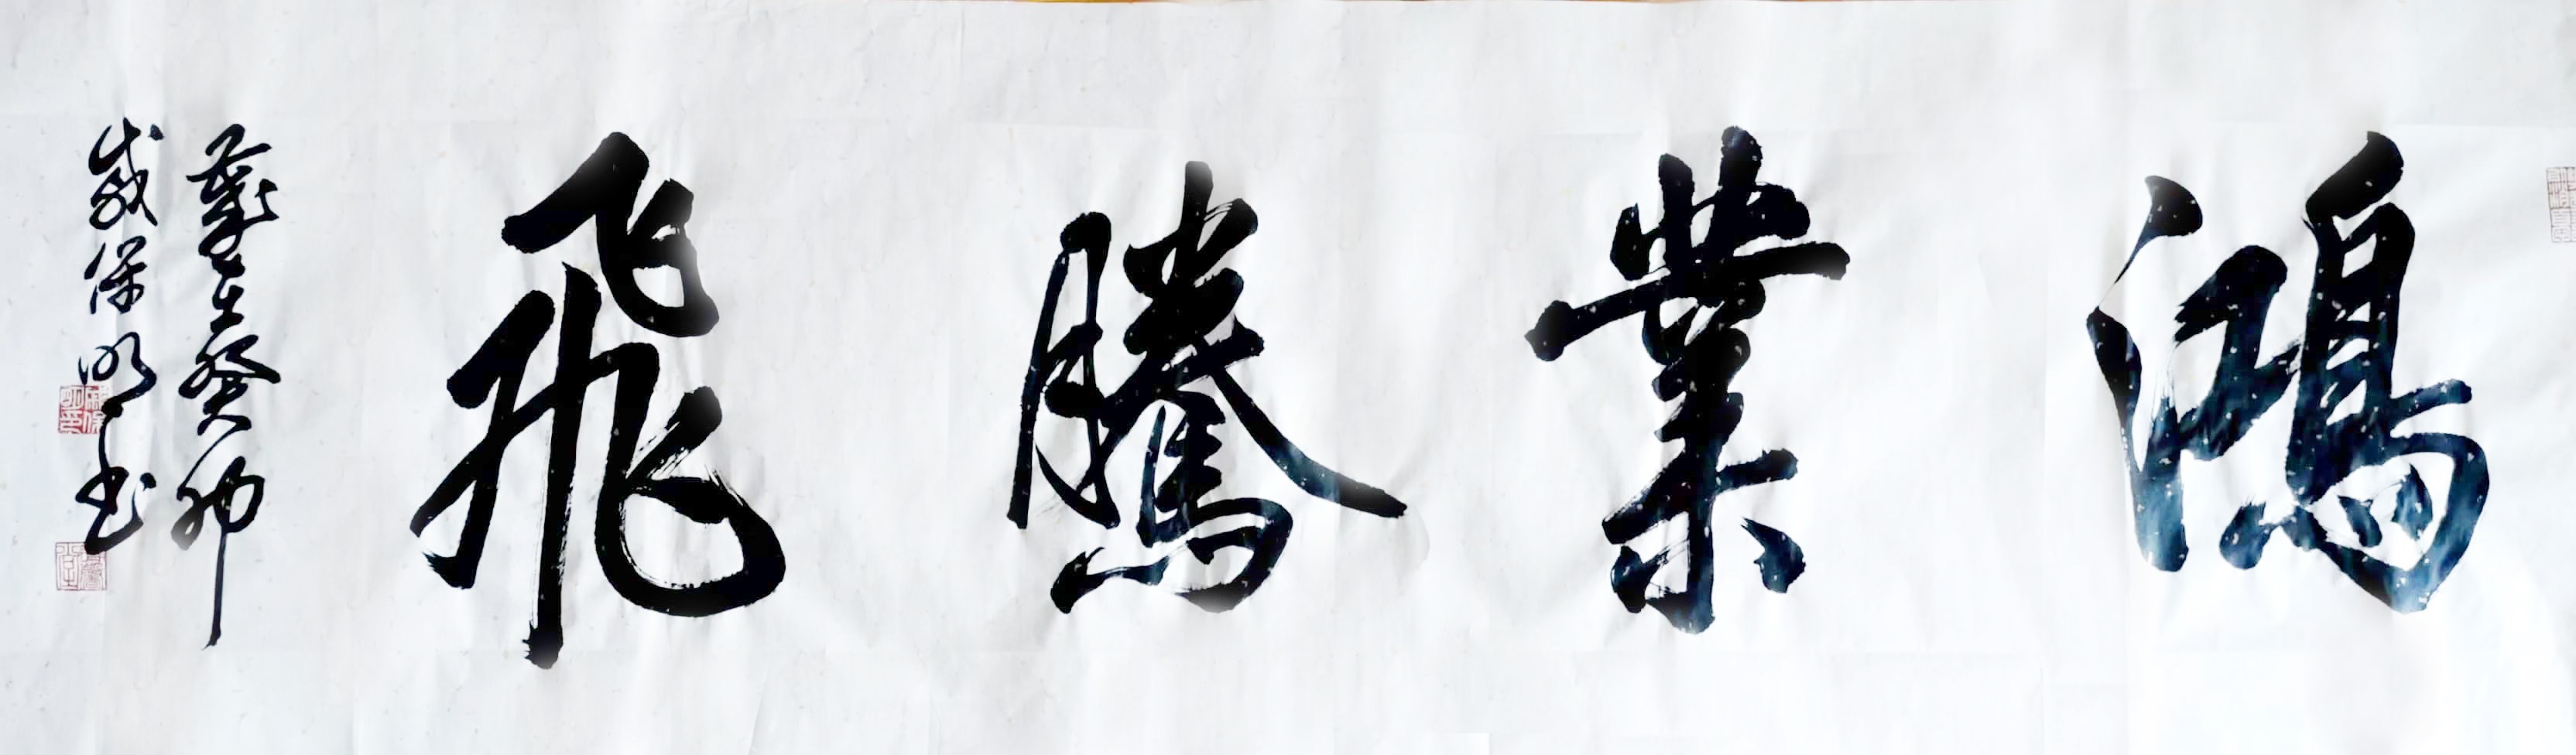 鴻業騰飛
歲在癸卯
戚保明书